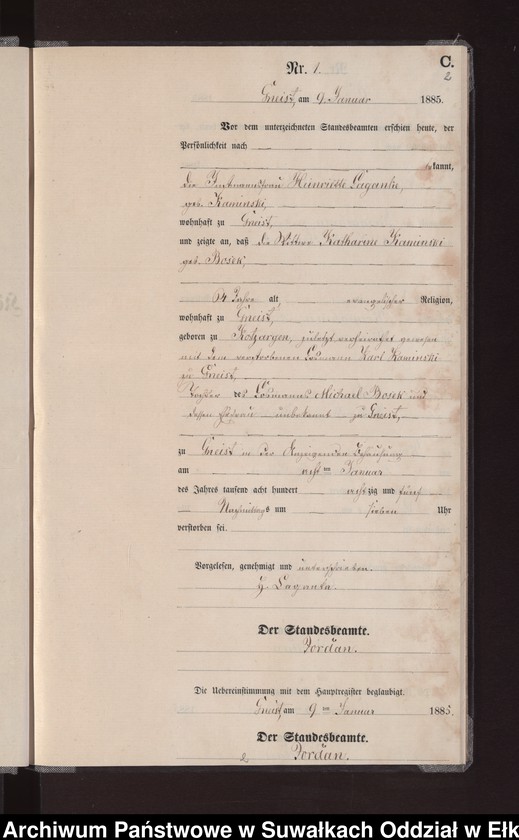 C.
Nr. 1.
2
Gneist, am 9. Januar 1885.
Vor dem unterzeichneten Standesbeamten erschien heute, der
Persönlichkeit nach
kannt,
die Henriette Laganke,
geb. Kaminski,
wohnhaft zu Gneist,
und zeigte an, daß die Wittwe Katharine Kaminski
geb. Bosek,
64 Jahre alt, evangelischer Religion,
wohnhaft zu Gneist,
geboren zu zuletzt verheirathet gewesen
mit dem verstorbenen Losmann Karl Kaminski
zu Gneist,
Tochter des Losmanns Michael Bosek und
dessen Ehefrau unbekannt zu Gneist,
zu Gneist in der Anzeigenden Behausung
am acht ten Januar
des Jahres tausend acht hundert acht zig und fünf
Nachmittags um sieben Uhr
verstorben sei.
Vorgelesen, genehmigt und unterschrieben.
H. Laganka
Der Standesbeamte.
Jordan.
Die Uebereinstimmung mit dem Hauptregister beglaubigt.
Gneist am 9 ten Januar 1885.
Der Standesbeamte.
Jordan.
2
Archiwum Państwowe w Suwałkach Oddział w Ełk